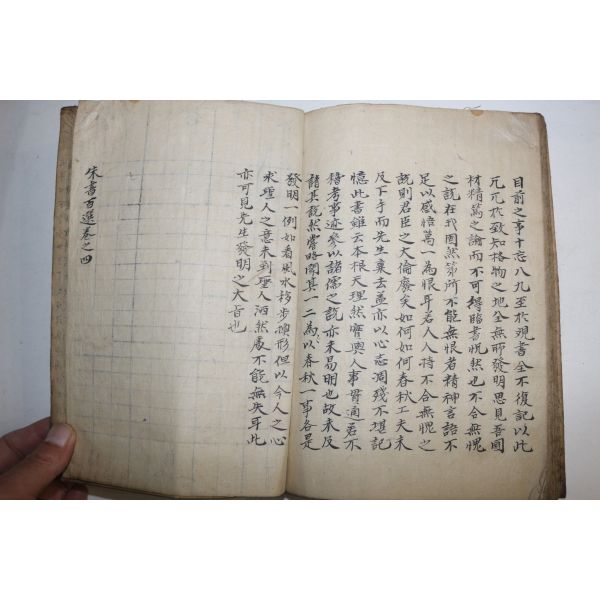 目前之事十忘八九至於觀書全不復記以此
兀兀於致知格物之地全無所發明思見吾圓
材精篤之論而不可得臨書悵然也不合無愧
之說在我固然第所不能無恨者精神言語不
足以感悟萬一為恨耳若人人持不合無愧之
說則君臣之大倫廢矣如何如何春秋工夫未
及下手而先生棄去益亦以心志凋殘不堪記
憶此書雖云本根天理然實與人事貫通若不
稽考事迹參以諸儒之說亦未易明也故未反
諸其說然嘗略聞其一二為以春秋一事各是
發明一例如看風水移步換形但以今人之心
求聖人之意未到聖人洒然處不能無失耳此
亦可見先生發明之大旨也
朱書百選卷之四